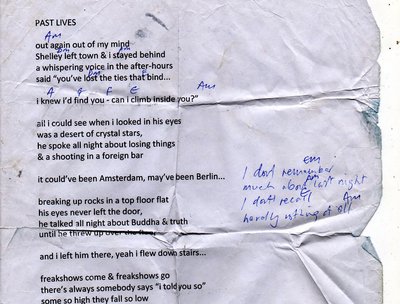 PAST LIVES
Am
out again out of my mind
Dm Am
Shelley left town & i stayed behind
a whispering voice in the after-hours
Dm E
said "you've lost the ties that bind...
A G F E Am
i knew i'd find you - can i climb inside you?"
all i could see when i looked in his eyes
was a desert of crystal stars,
he spoke all night about losing things
& a shooting in a foreign bar
it could've been Amsterdam, may've been Berlin...
Em
I don't remember
Am
much about last night
E
I don't recall
Am
hardly nothing at all
breaking up rocks in a top floor flat
his eyes never left the door,
he talked all night about Buddha & truth
until he threw up over the floor
and i left him there, yeah i flew down stairs...
freakshows come & freakshows go
there's always somebody says "i told you so"
some so high they fall so low